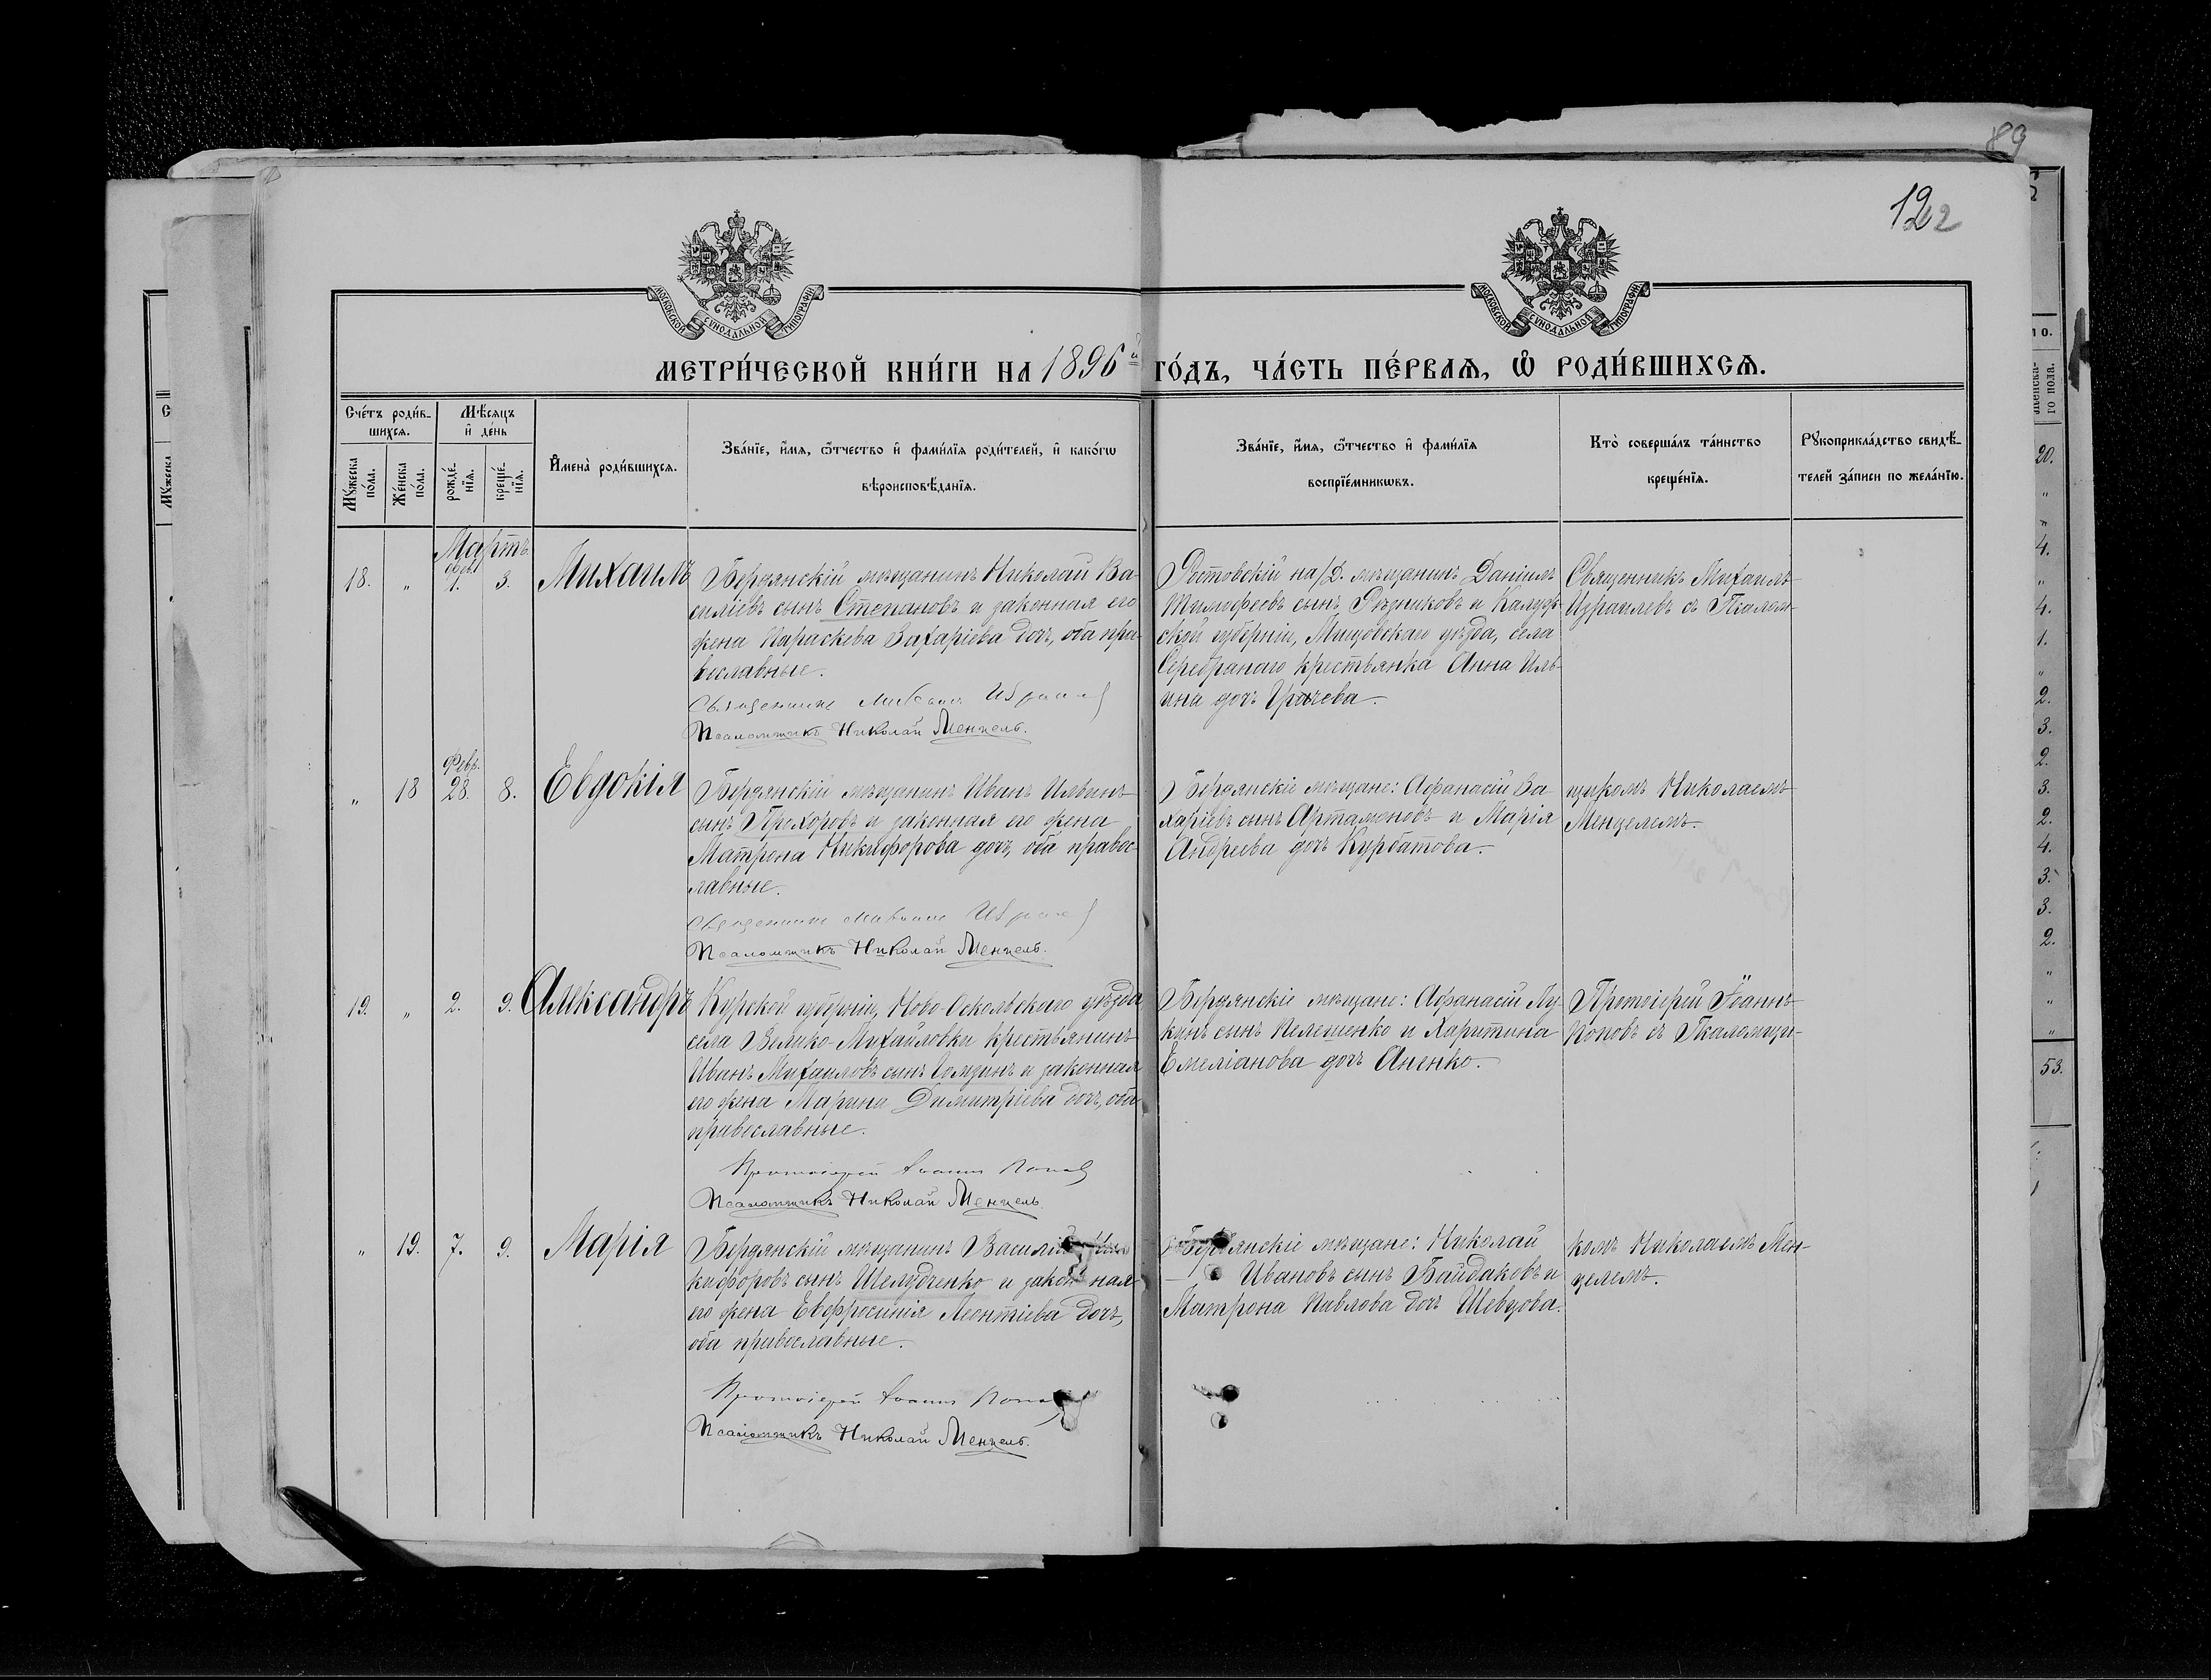 89
122
МОСКОВСКОЙ СѴНОДАЛЬНОЙ ТИПОГРАФІИ
МОСКОВСКОЙ СѴНОДАЛЬНОЙ ТИПОГРАФІИ
МЕТРИ́ЧЕСКОЙ КНИ́ГИ НА 1896й ГО́ДЪ, ЧА́СТЬ ПЕ́РВАѦ, Ѡ҆ РОДИ́ВШИХСѦ.
Сче́тъ роди́в-
шихсѧ.
Мѣ́сѧцъ
и҆ де́нь
Мꙋ́жеска
по́ла.
Же́нска
по́ла.
рожде́-
нїѧ.
креще́-
нїѧ.
И҆мена̀ роди́вшихсѧ.
Зва́нїе, и҆́мѧ, ѻ҆́тчество и҆ фами́лїѧ роди́телей, и҆ како́гѡ
вѣроисповѣ́данїѧ.
Зва́нїе, и҆́мѧ, ѻ҆́тчество и҆ фами́лїѧ
воспрїе́мникѡвъ.
Кто̀ соверша́лъ та́инство
креще́нїѧ.
Рꙋкоприкла́дство свидѣ́-
телей за́писи по жела́нїю.
Мартъ.
18. " 1. 3. Михаилъ
Бердянскій мѣщанинъ Николай Ва-
силіевъ сынъ Степановъ и законная его
жена Параскева Захаріева дочь, оба пра-
вославные.
Священникъ Михаилъ
Псаломщикъ Николай Менцель.
Ростовскій на/Д. мѣщанинъ Даніилъ
Тимофеевъ сынъ Рѣзниковъ и Калуж-
ской губерніи, Мищовскаго уѣзда, села
Серебранаго крестьянка Анна Иль-
ина дочь
Священникъ Михаилъ
Израилевъ съ Псалом-
Февр.
" 18 28. 8. Евдокія
Бердянскій мѣщанинъ Иванъ Ильинъ
сынъ Прохоровъ и законная его жена
Матрона Никифорова дочь, оба правос-
лавные.
Священникъ Михаилъ
Псаломщикъ Николай Менцель.
Бердянскіе мѣщане: Афанасій За-
харіевъ сынъ Артамоновъ и Марія
Андреева дочь Курбатова.
щикомъ Николаемъ
Менцелемъ.
19. " 2. 9. Александръ
Курской губерніи, Ново-Оскольскаго уѣзда
села Велико-Михайловки крестьянинъ
Иванъ Михаиловъ сынъ и законная
его жена Марина Димитріева дочь, оба
православные.
Протоіерей Іоаннъ Поповъ
Псаломщикъ Николай Менцель.
Бердянскіе мѣщане: Афанасій Лу-
кинъ сынъ Келешенко и Харитина
Емеліанова дочь Аненко.
Протоіерей Іоаннъ
Поповъ съ Псаломщи-
" 19. 7. 9. Марія
Бердянскій мѣщанинъ Василій Ни-
кифоровъ сынъ Шелудченко и законная
его жена Евфросинія Леонтіева дочь,
оба православные.
Протоіерей Іоаннъ Поповъ
Псаломщикъ Николай Менцель.
Бердянскіе мѣщане: Николай
Ивановъ сынъ Байдаковъ и
Матрона Павлова дочь Шевцова.
комъ Николаемъ Мен-
целемъ.
20.
"
"
4.
"
4.
1.
"
2.
3.
2.
3.
2.
4.
3.
3.
2.
"
"
"
53.